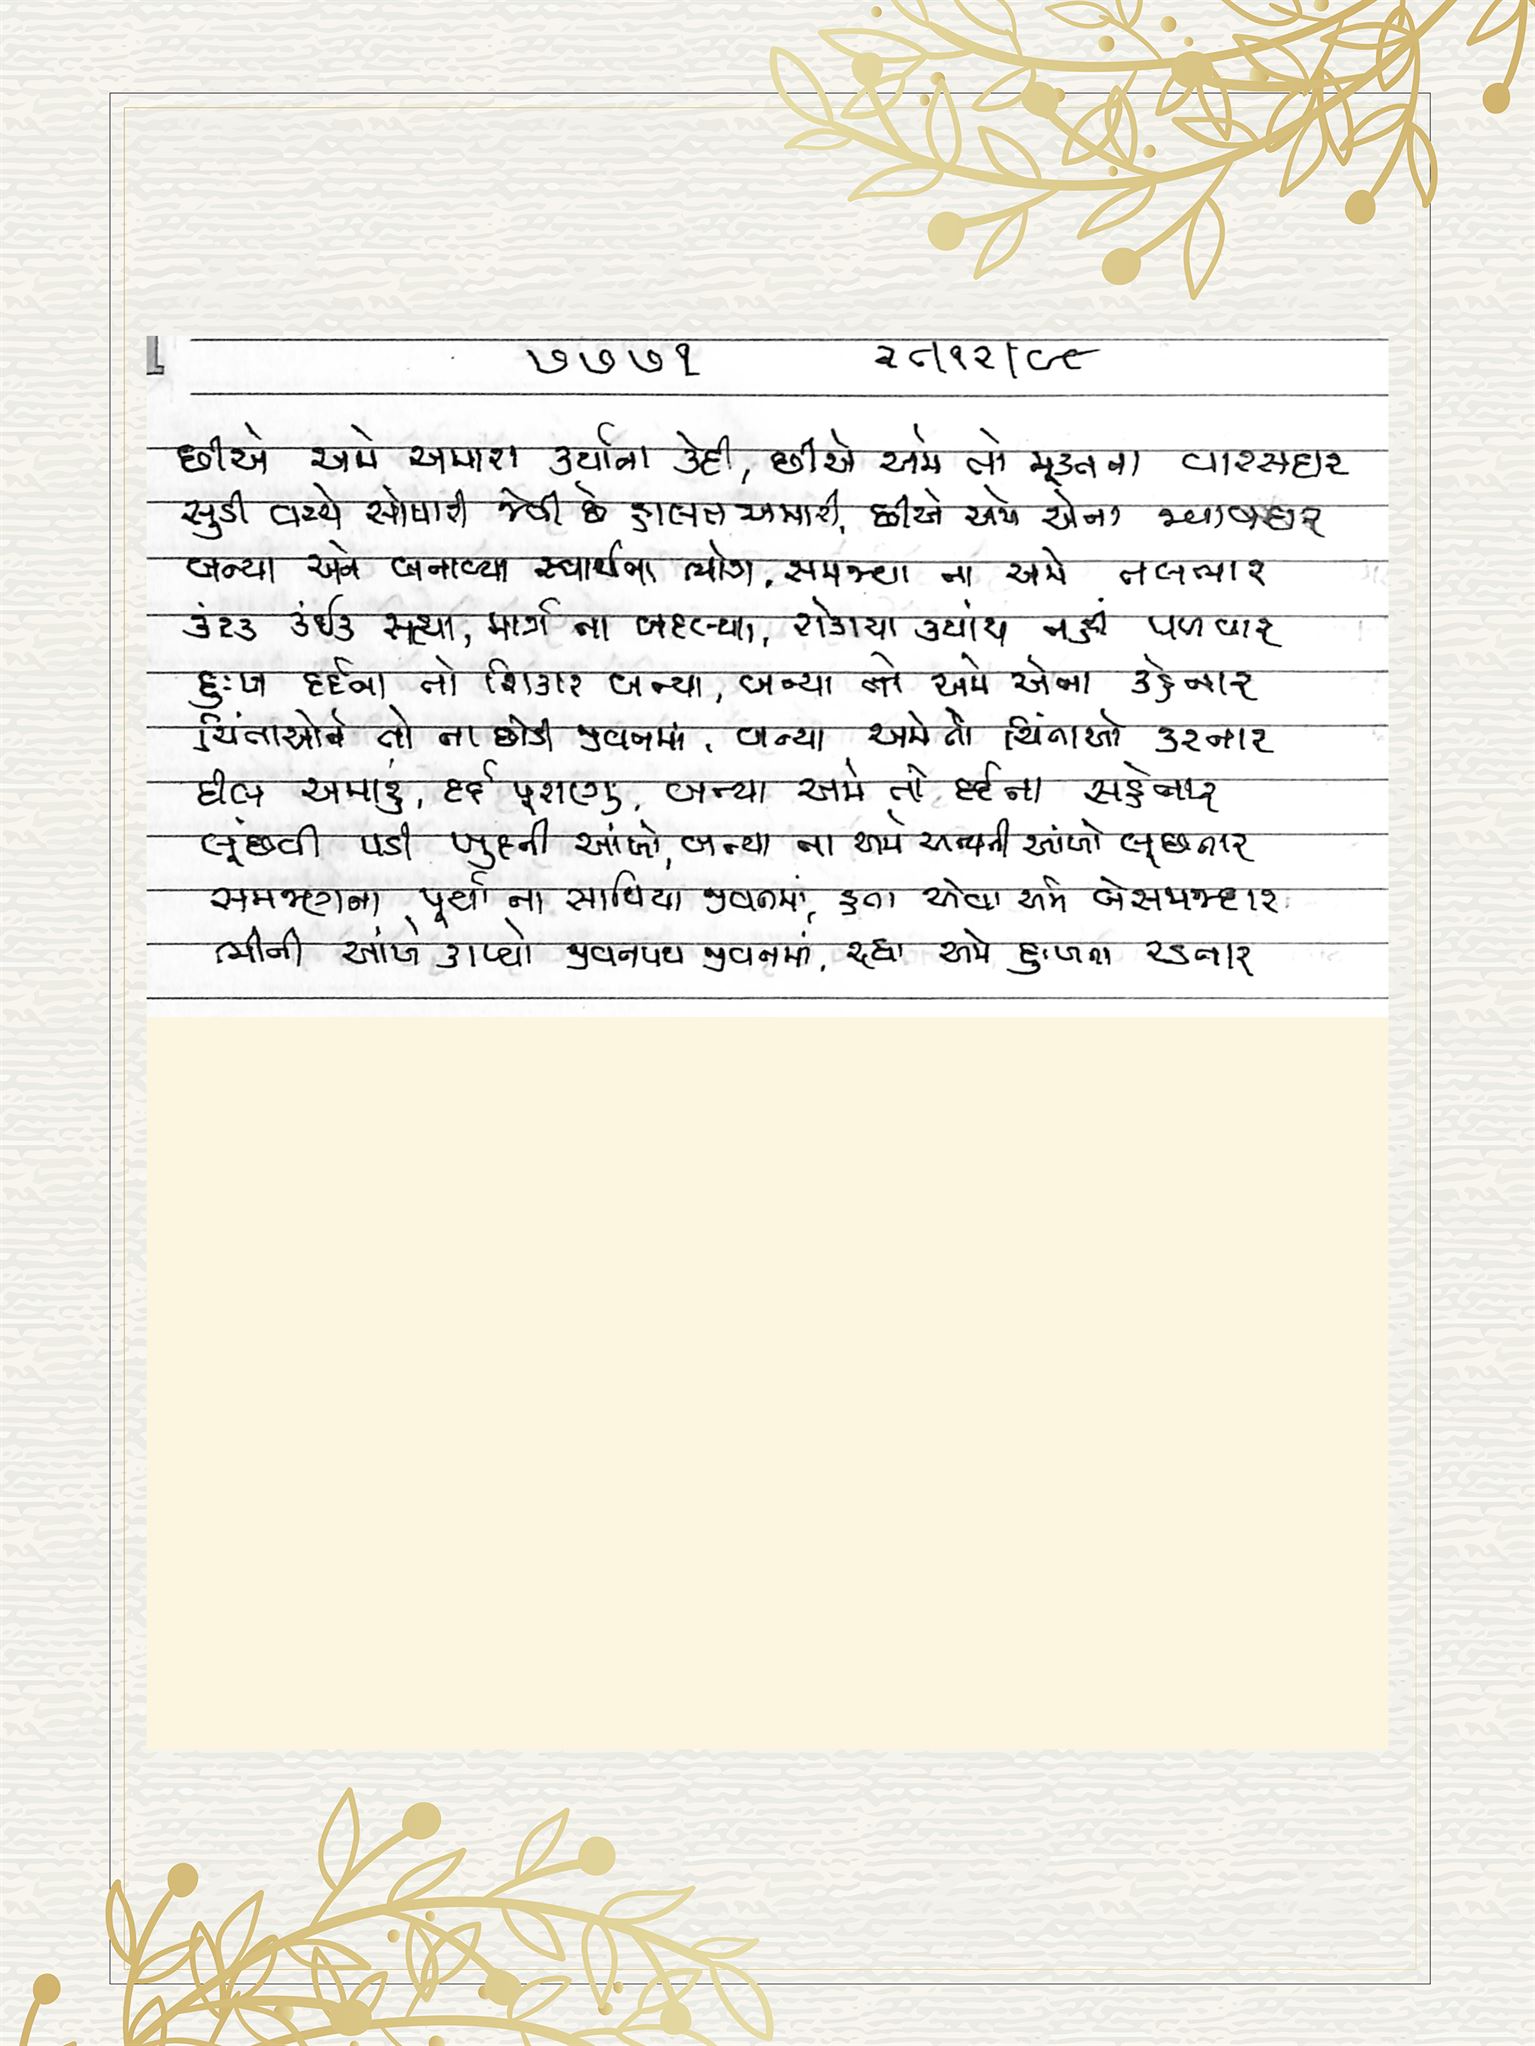 ૭૭૭૧ ૨૮/૧૨/૯૮
છીએ અમે અમારા કર્યાના કેદી, છીએ અમે તો મૂડતના વારસદાર
સુડી વચ્ચે સોપારી જેવી છે હાલત અમારી, છીએ અમે એના
બન્યા અને બનાવ્યા સ્વાર્થના ભોગ, સમજ્યા ના અમે તલભાર
કંટક કંઈક સહ્યા, માર્ગ ના બદલ્યા, રોકાયા ક્યાંય નહીં પળવાર
દુઃખ દર્દના તો શિકાર બન્યા, બન્યા તો અમે એના કહેનાર
ચિંતાઓને તો ના છોડી જીવનમાં, બન્યા અમે તો ચિંતાઓ કરનાર
દીલ અમારું, દર્દ પૂરાણું, બન્યા અમે તો દર્દના સહેનાર
લૂંછવી પડી ખુદની આંખો, બન્યા ના અમે અન્યની આંખો લૂછનાર
સમજણના પૂર્યા ના સાથિયા જીવનમાં, હતા એવા અમે બેસમજદાર
ભીની આંખે કાપ્યો જીવનપથ જીવનમાં, રહ્યા અમે દુઃખના રડનાર